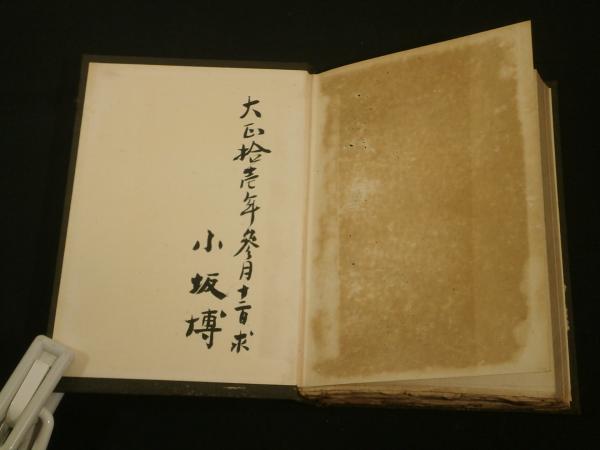 大正拾壱年参月十二日求
小坂博